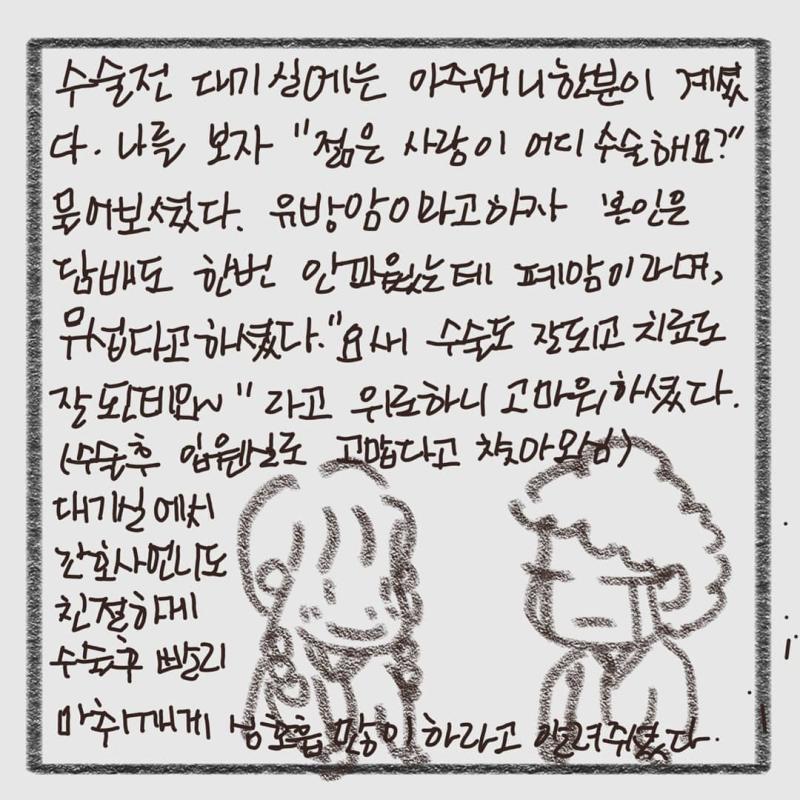 수술전 대기실에는 아주머니한분이 계셨
다. 나를 보자 "젊은 사람이 어디 수술해요?"
물어보셨다. 유방암이라고하자 본인은
담배도 한번 안피웠는데 폐암이라며,
무섭다고하셨다. "요새 수술도 잘되고 치료도
잘 된데요~" 라고 위로하니 고마워하셨다.
(수술후 입원실로 고맙다고 찾아오심)
대기실에서
간호사언니도
친절하게
수술후 빨리
마취깨게 심호흡 많이 하라고 알려주셨다.